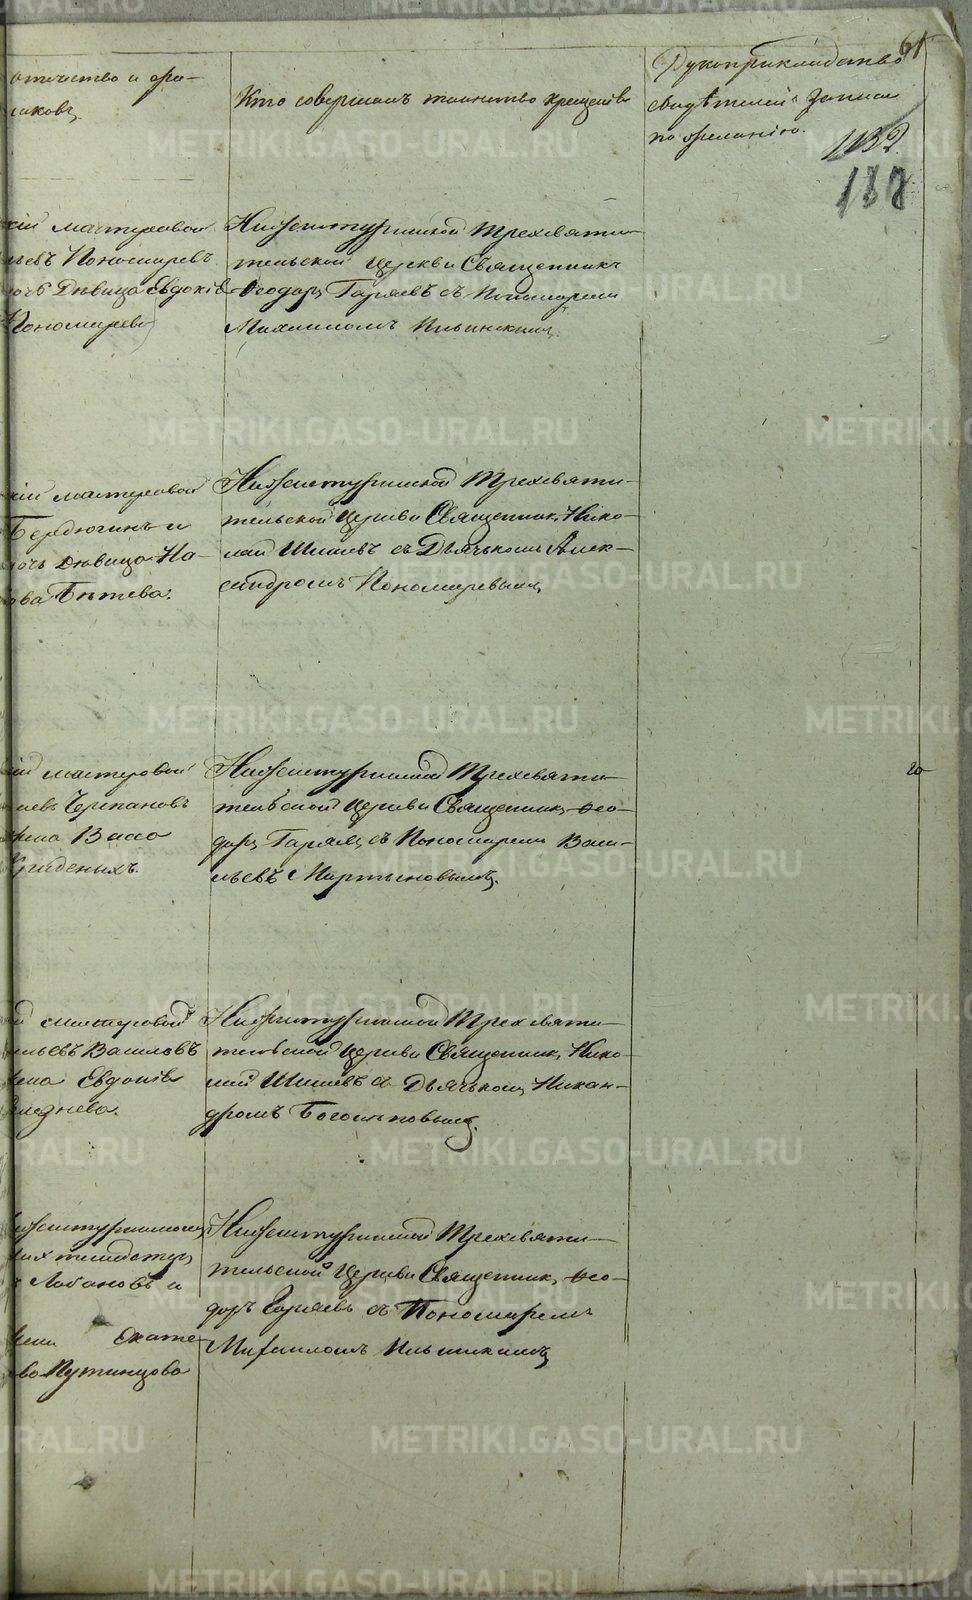 61
отчество и фа-
Кто совершалъ таинство крещенія
Рукоприкладство
свидѣтелей записи
по желанію.
1132
188
кій мастеровой
ьевъ Пономаревъ
дочь Дѣвица Евдокія
Пономарева
Нижнетуринской Трехсвяти-
тельской Церкви Священникъ
Ѳеодоръ Гаряевъ съ Пономаремъ
Михаиломъ Ильинскимъ
кій мастеровой
Бердюгинъ и
дочь дѣвица На-
ова Бѣтева.
Нижнетуринской Трехсвяти-
тельской Церкви Священникъ Нико-
лай Шишевъ съ Дьячкомъ Алек-
сандромъ Пономаревымъ
кій мастеровой
Черепановъ
жена Васса
Нижнетуринской Трехсвяти-
тельской Церкви Священникъ Ѳео-
доръ Гаряевъ съ Пономаремъ Васи-
льевъ Мартыновымъ.
20
мастеровой
ильевъ Василовъ
жена Евдокія
Нижнетуринской Трехсвяти-
тельской Церкви Священникъ Нико-
лай Шишевъ съ Дьячкомъ Никан-
дромъ Богословымъ.
Нижнетуринской
Лобановъ и
жена Екате-
ва Путинцова
Нижнетуринской Трехсвяти-
тельской Церкви Священникъ Ѳео-
доръ Гаряевъ съ Пономаремъ
Михаиломъ Ильинскимъ